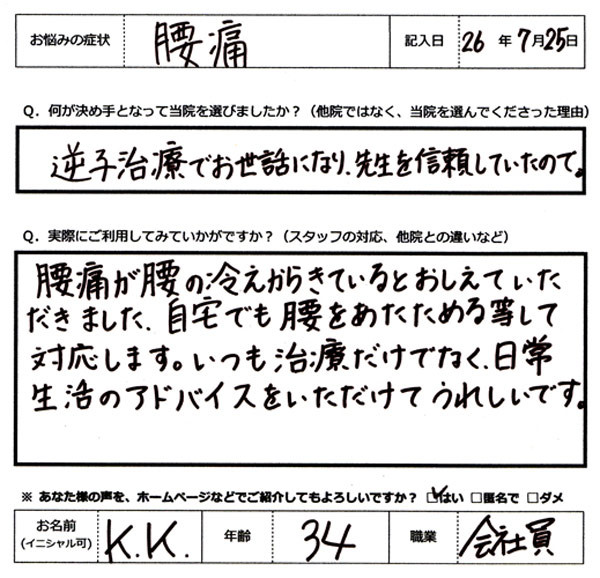 お悩みの症状 腰痛 記入日 26 年 7月25日
Q．何が決め手となって当院を選びましたか？（他院ではなく、当院を選んでくださった理由）
逆子治療でお世話になり、先生を信頼していたので。
Q．実際にご利用してみていかがですか？（スタッフの対応、他院との違いなど）
腰痛が腰の冷えからきているとおしえていた
だきました、自宅でも腰をあたためる等して
対応します。いつも治療だけでなく、日常
生活のアドバイスをいただけてうれしいです。
※ あなた様の声を、ホームページなどでご紹介してもよろしいですか？ ☑はい □匿名で □ダメ
お名前 K.K. 年齢 34 職業 会社員
(イニシャル可)